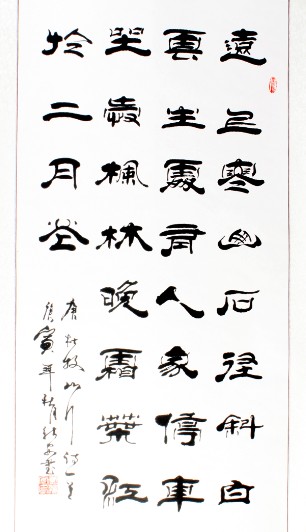 遠上寒山石徑斜白
雲生處有人家停車
坐愛楓林晚霜葉紅
於二月花
唐杜牧山行詩一首
庚寅年